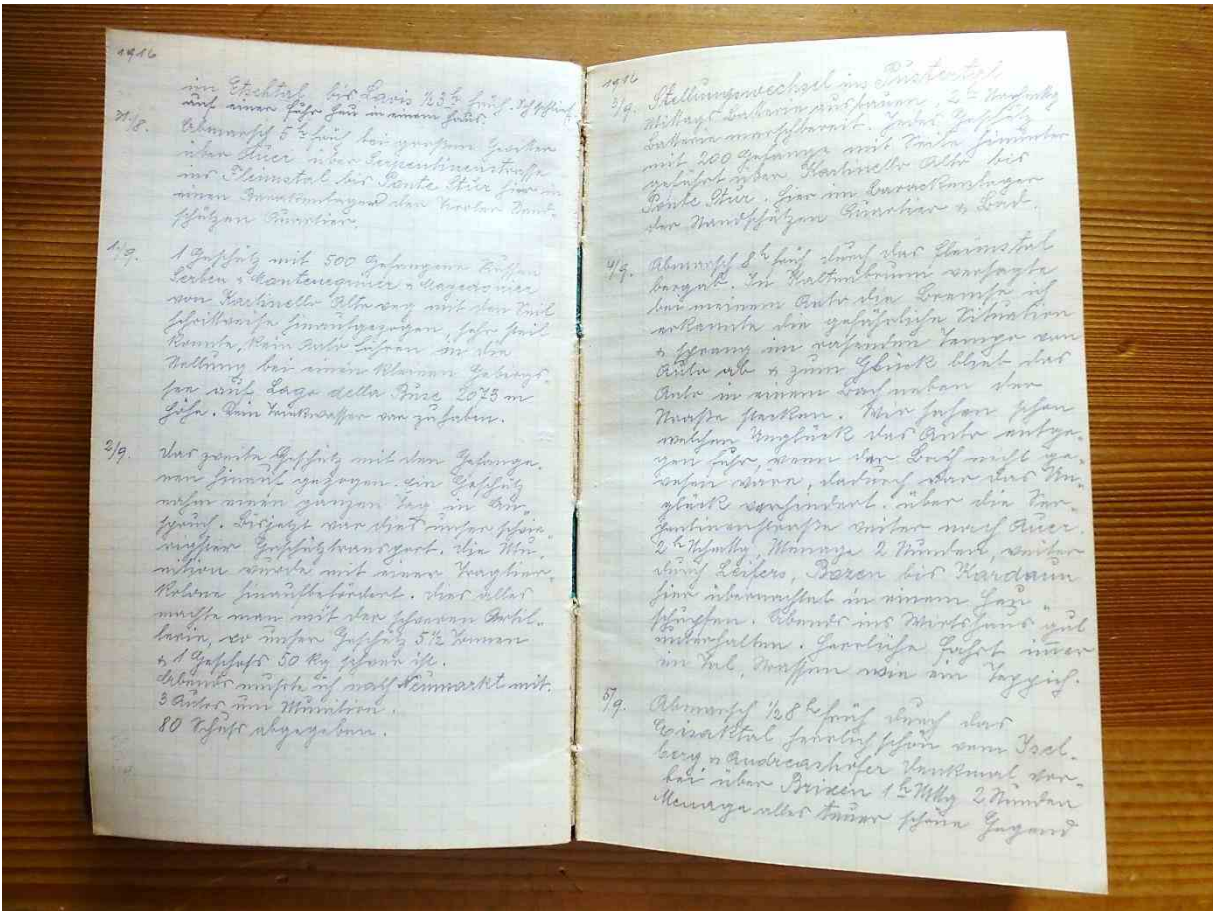 1916
im Etschtal bis Lavis ½3 h früh. Schlafen
auf einer Fuhr Heu in einem Haus.
31/8. Abmarsch 5 h früh bei großem Gewitter
über Auer über Serpentinenstrasse
ins Fleimstal bis Ponte Stur hier in
einen Barakenlager der Tiroler Stand-
schützen Quartier.
1./9. 1 Geschütz mit 500 Gefangene Russen
Serben u Montenegriner u
von Kachinello Alto weg mit den Seil
schrittweise hinaufgezogen, sehr steil
konnte kein Auto fahren in die
Stellung bei einen kleinen Gebirgs-
see auf Lago della Buse 2073 m
Höhe. Kein Trinkwasser war zu haben.
2/9. Das zweite Geschütz mit den Gefange-
nen hinauf gezogen. Ein Geschütz
nahm einen ganzen Tag in An-
spruch. Bisjetzt war dies unser schwie-
rigster Geschütztransport. Die Mu-
nition wurde mit einer Tragtier-
kolone hinaufbefördert. Dies alles
machte man mit der schweren Artil-
lerie, wo unser Geschütz 5½ Tonnen
u 1 Geschoß 50 kg schwer ist.
Abends mußte ich nach Neumarkt mit
3 Autos um Munition.
80 Schuß abgegeben.
1916
3/9. Stellungswechsel ins Pustertal
Mittags Batterie ausbauen, 2 h Nachmittg
Batterie marschbereit. Jedes Geschütz
mit 200 Gefange mit Seile hinunter
geführt über Kachinello Alto bis
Ponte Stur. Hier im Barackenlager
der Standschützen Quartier u Bad.
4/9. Abmarsch 8 h früh durch das Fleimstal
bergab. In Kaltenbrunn versagte
bei meinem Auto die Bremse ich
erkannte die gefährliche Situation
u sprang im rasenden Tempo von
Auto ab u zum Glück blieb das
Auto in einem Bach neben der
Straße stecken. Wir sahen schon
welchen Unglück das Auto entge-
gen fuhr, wenn der Bach nicht ge-
wesen wäre, dadurch war das Un-
glück verhindert. Über die Ser-
pentinenstraße weiter nach Auer
2 h Nchmttg, Menage 2 Stunden, weiter
durch Leifers, Bozen bis Kardaun
hier übernachtet in einem Heu-
schupfen. Abends ins Wirtshaus gut
unterhalten. Herrliche Fahrt immer
im Tal, Strassen wie ein Teppich.
5/9. Abmarsch ½8 h früh durch das
Eisaktal herrlich schön vom Isel-
berg u Andreashofer Denkmal vor-
bei über Brixen 1 h Mttg 2 Stunden
Menage alles teuer schöne Gegend